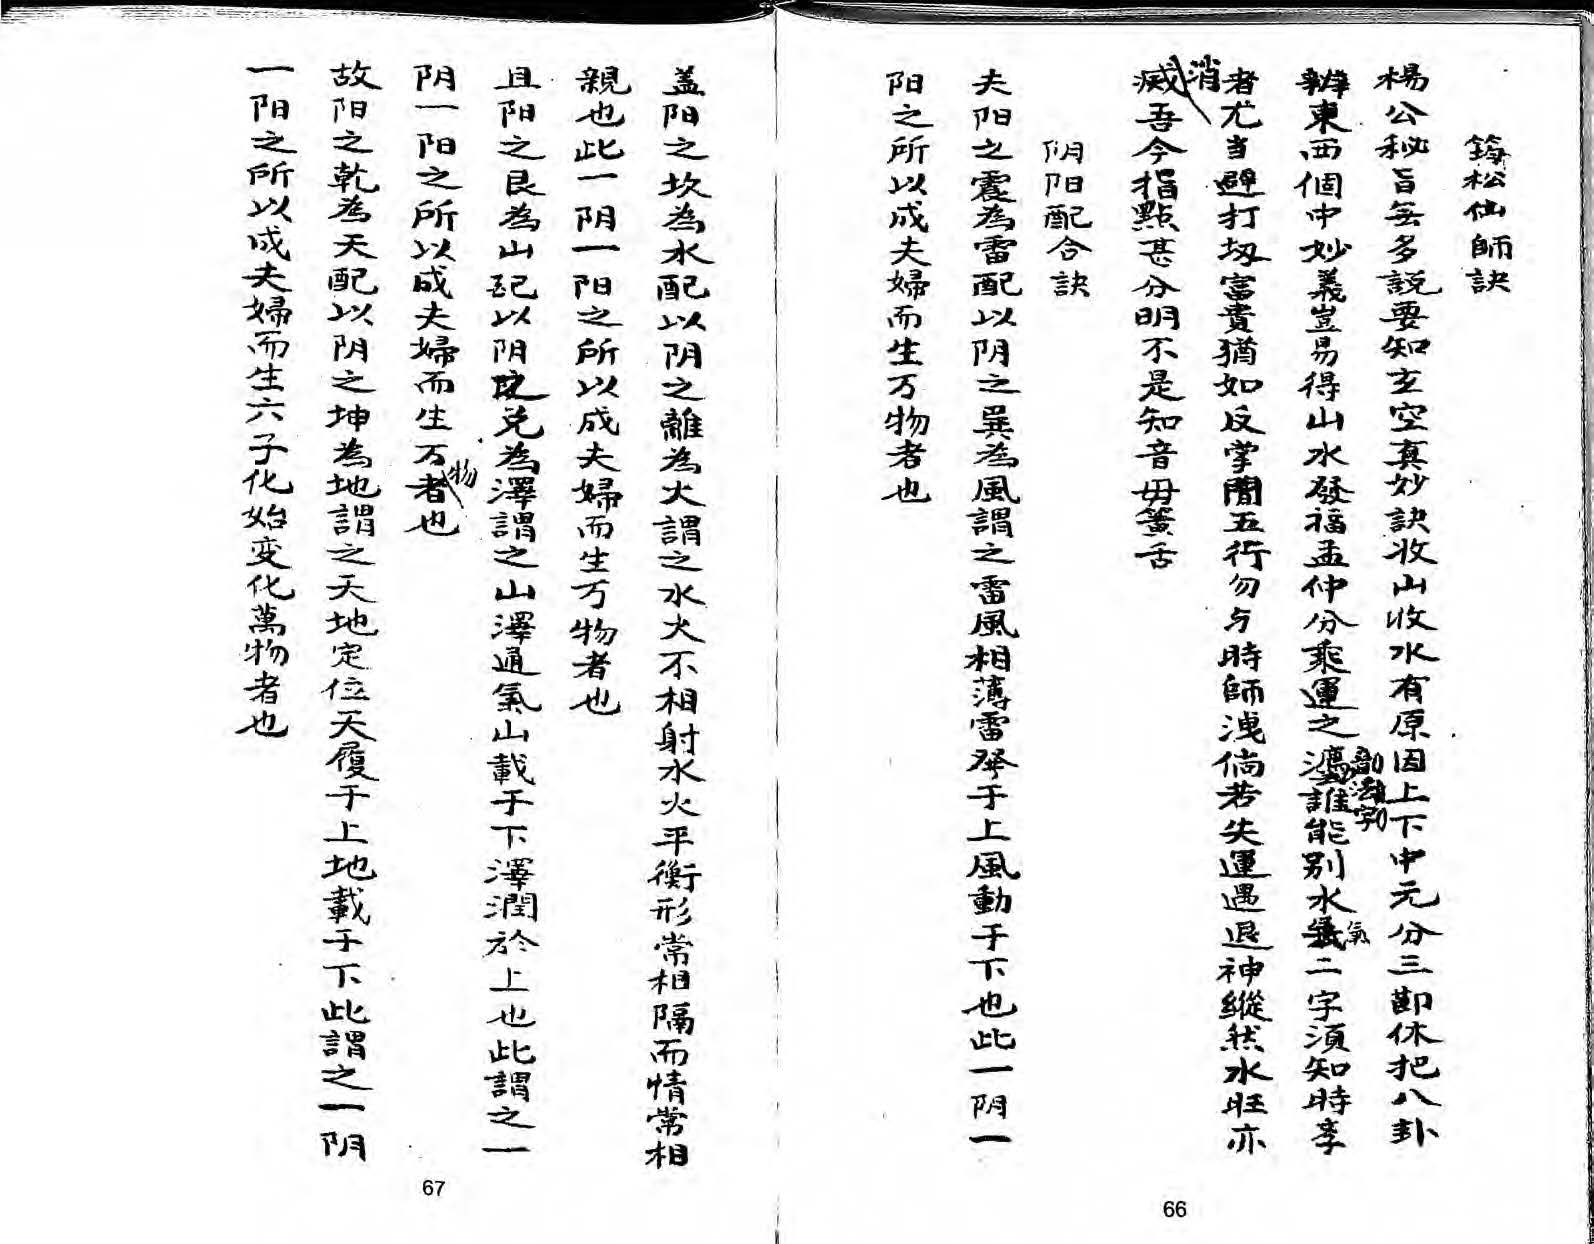 筠松仙師訣
楊公秘旨無多説要知玄空真妙訣收山收水有原因上下中元分三節休把八卦
辨東西個中妙義豈易得山水發福孟仲分乘運之誰能别水氣二字須知時季
者尤当避打刼富貴猶如反掌間五行勿与時師洩倘若失運遇退神縱然水旺亦
消滅吾今指點甚分明不是知音毋簧舌
阴阳配合訣
夫阳之震為雷配以阴之巽為風謂之雷風相薄雷發于上風動于下也此一阴一
阳之所以成夫婦而生万物者也
66
盖阳之坎為水配以阴之離為火謂之水火不相射水火平衡形常相隔而情常相
親也此一阴一阳之所以成夫婦而生万物者也
且阳之艮為山配以阴之兑為澤謂之山澤通氣山載于下澤潤於上也此謂之一
阴一阳之所以成夫婦而生万物者也
故阳之乾為天配以阴之坤為地謂之天地定位天履于上地載于下此謂之一阴
一阳之所以成夫婦而生六子化始变化萬物者也
67